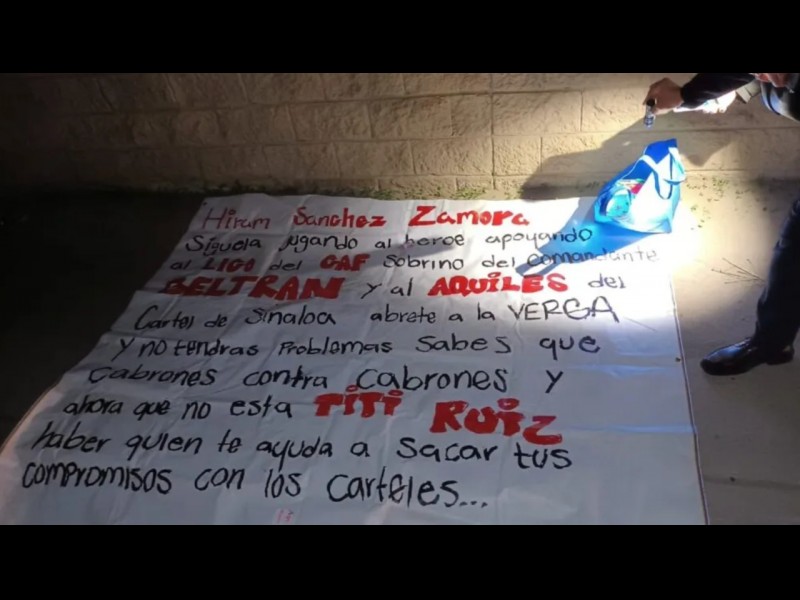 Hiram Sanchez Zamora
Siguela jugando al heroe apoyando
al LICO del CAF sobrino del comandante
BELTRAN y al AQUILES del
Cartel de Sinaloa abrete a la VERGA
y no tendras Problemas sabes que
cabrones contra cabrones y
ahora que no esta TITI RUIZ
haber quien te ayuda a sacar tus
compromisos con los carteles...